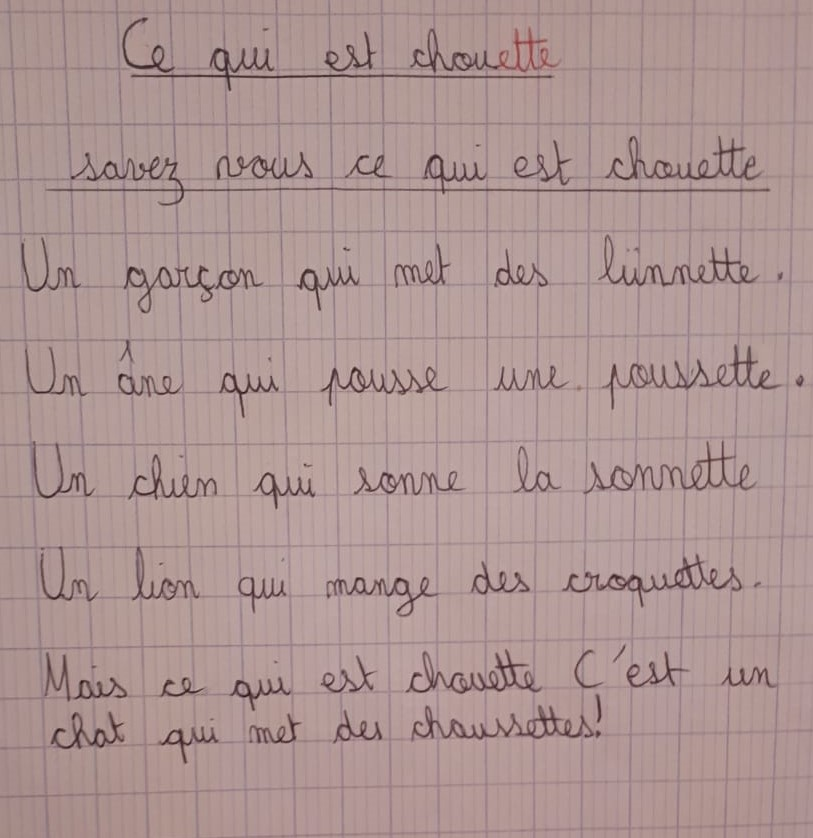 Ce qui est chouette
savez vous ce qui est chouette
Un garçon qui met des lunnette.
Un âne qui pousse une poussette.
Un chien qui sonne la sonnette
Un lion qui mange des croquettes.
Mais ce qui est chouette C'est un
chat qui met des chaussettes!